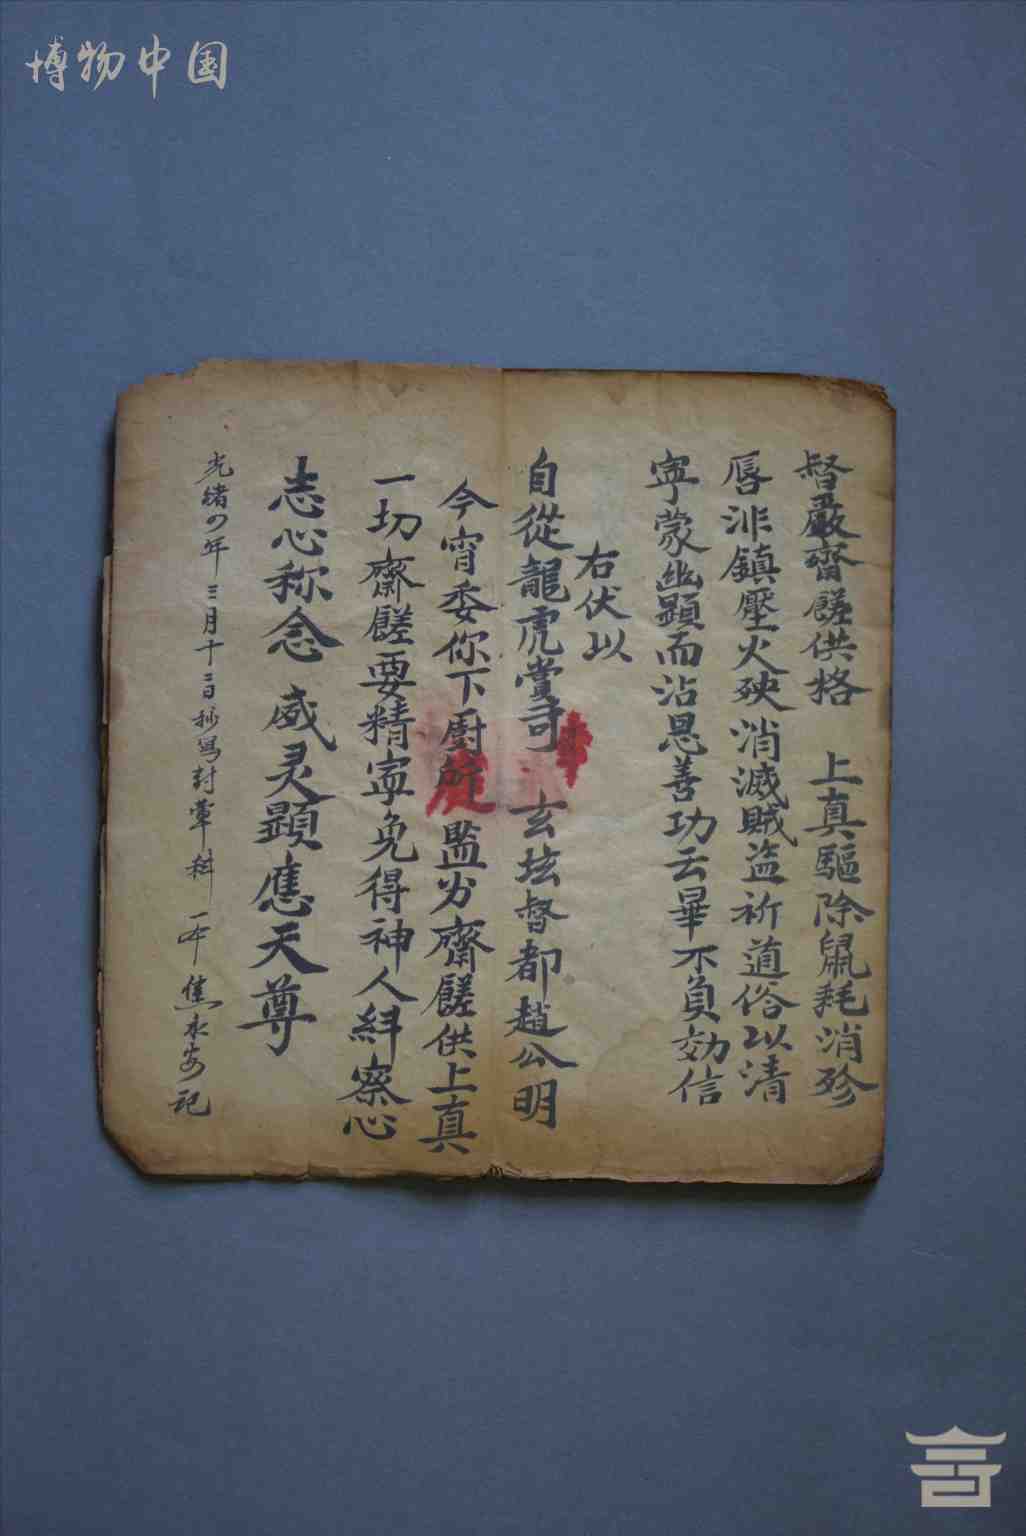 博物中国
督嚴齋饈供格　上真驅除鼠耗消殄
唇沚鎮壓火殃消滅賊盜祈道俗以清
寧蒙幽顯而沾恩善功云畢不負効信
右伏以
自從龍虎賞奇　玄坛督都趙公明
今宵委你下廚所　監分齋饈供上真
一切齋饈要精寧免得神人糾察心
志心称念　威灵顯應天尊
光緒四年三月十二日抄寫封章科一本焦永安記